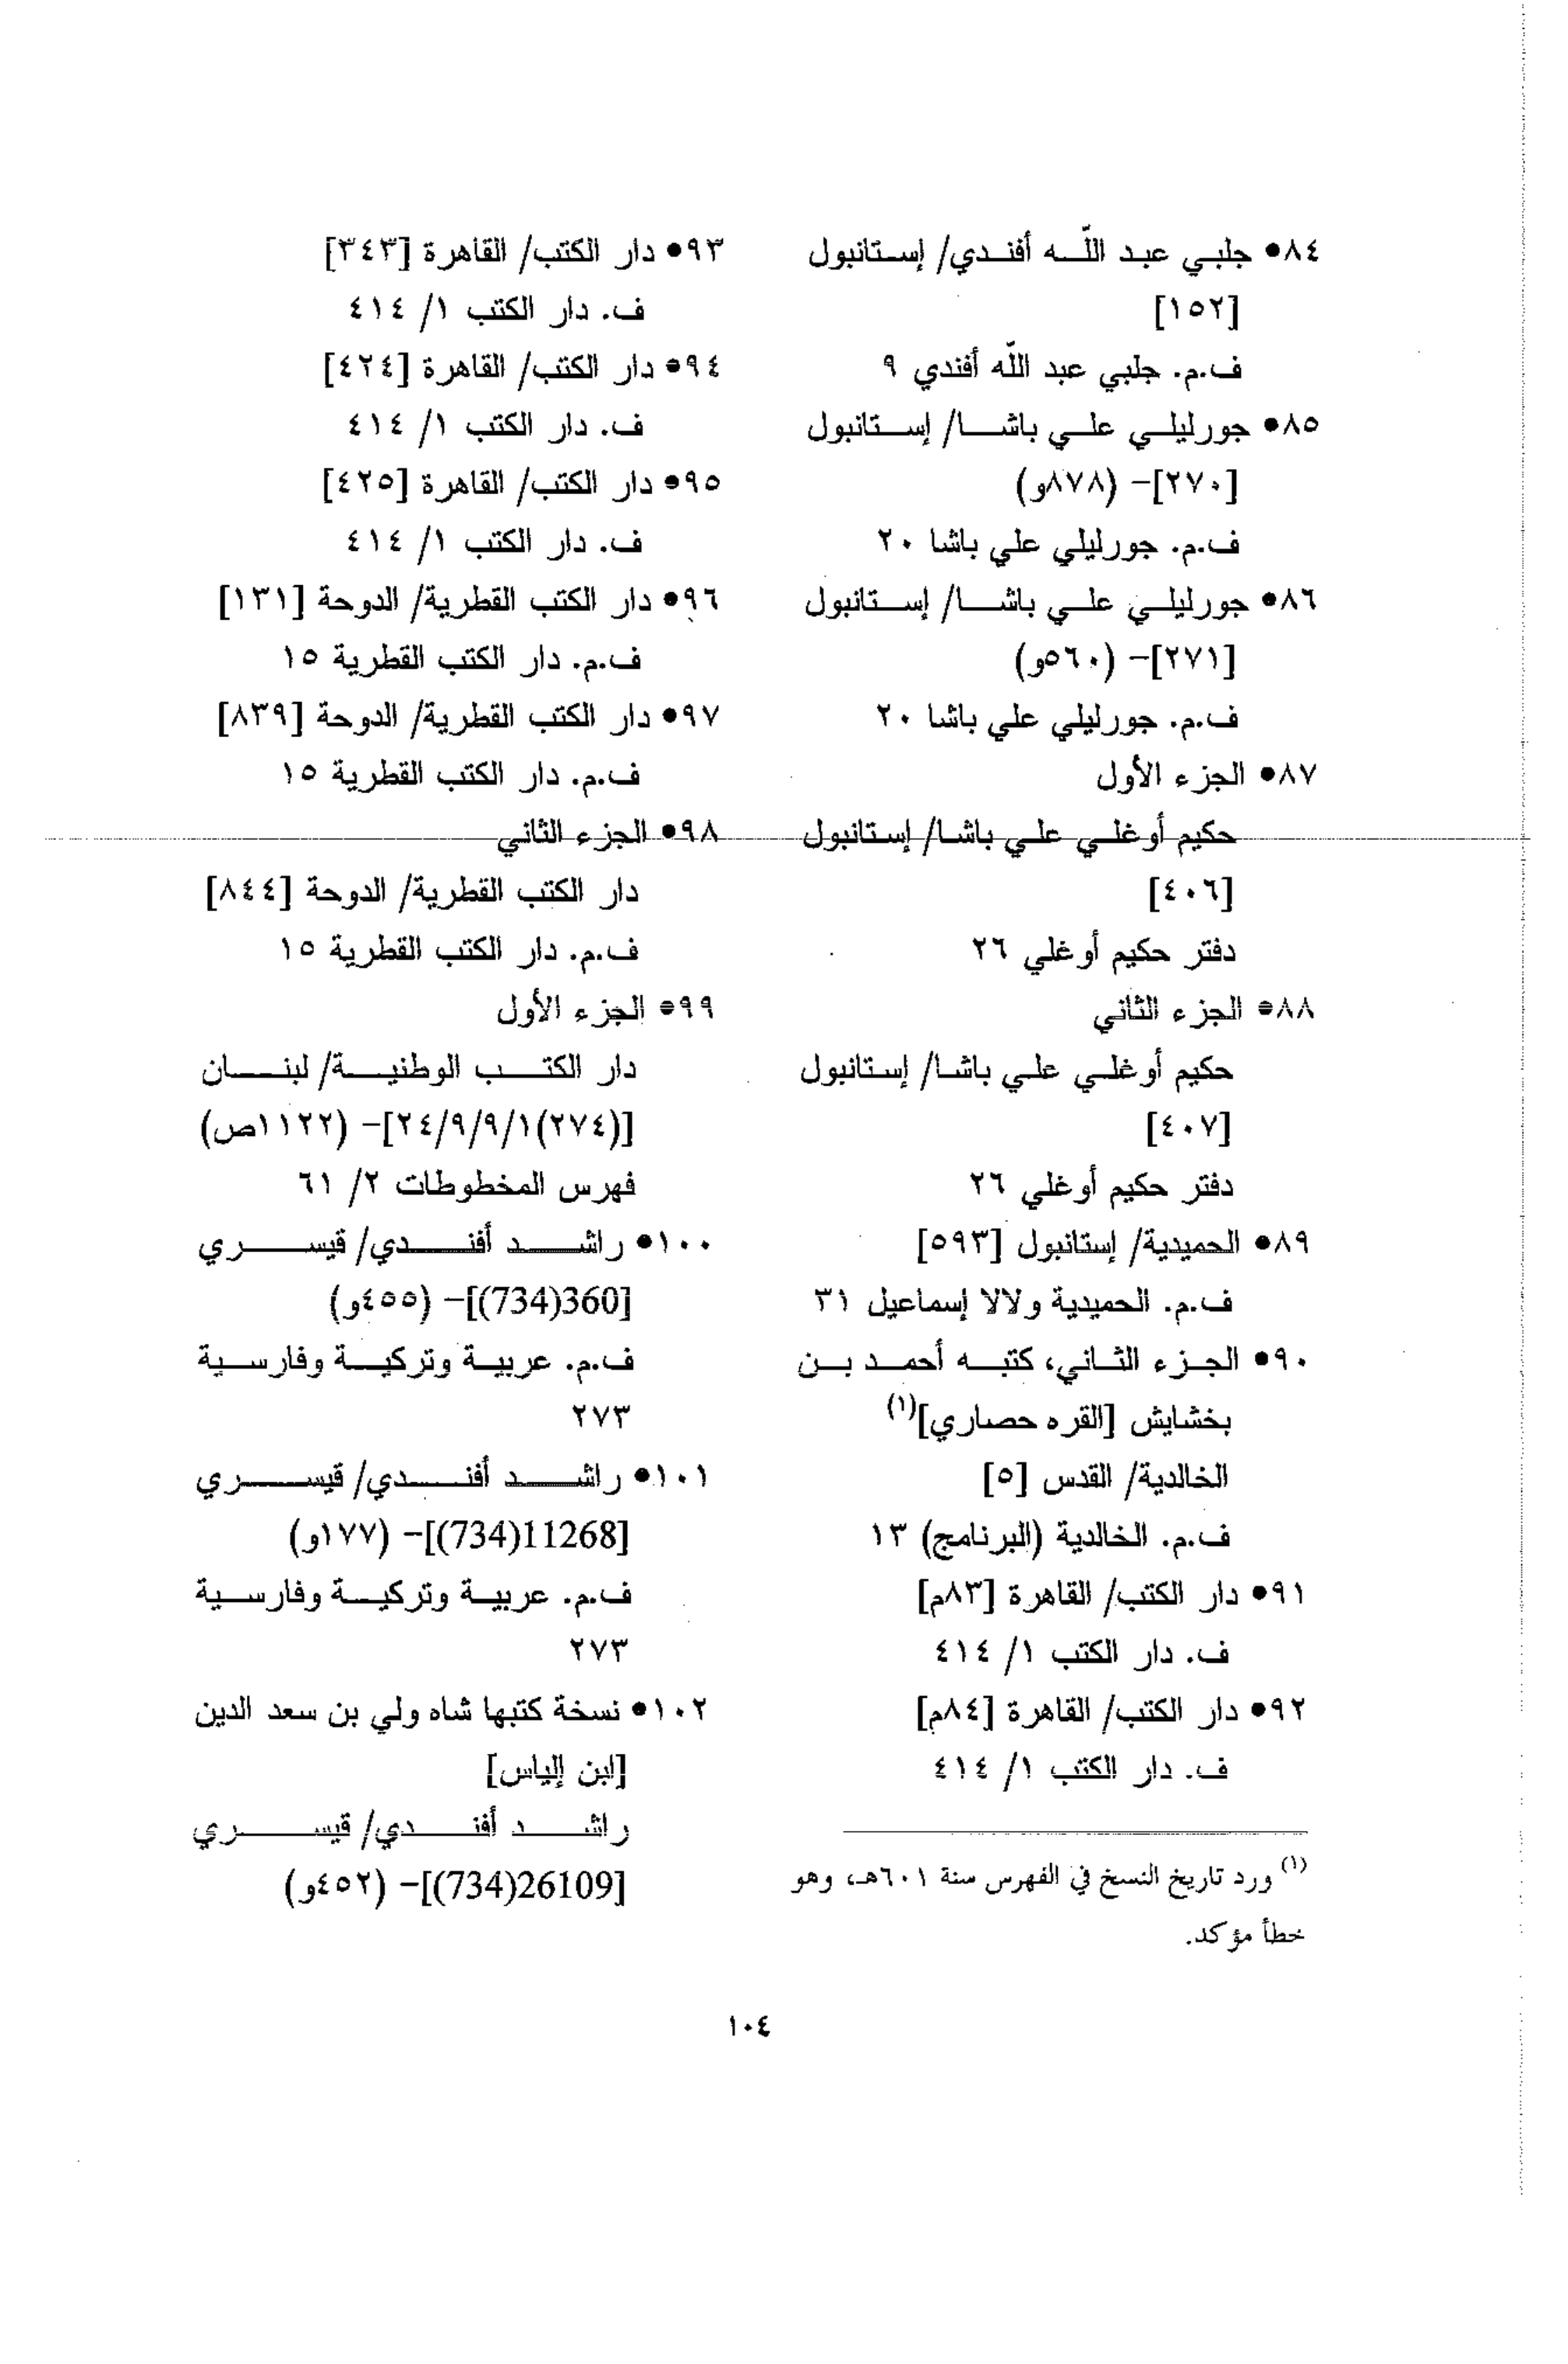 ٨٤• جلبي عبد اللّه أفندي/ إستانبول
[١٥٢]
ف.م. جلبي عبد اللّه أفندي ٩
٨٥• جورليلي علي باشا/ إستانبول
[٢٧٠]– (٨٧٨و)
ف.م. جورليلي علي باشا ٢٠
٨٦• جورليلي علي باشا/ إستانبول
[٢٧١]– (٥٦٠و)
ف.م. جورليلي علي باشا ٢٠
٨٧• الجزء الأول
حكيم أوغلي علي باشا/ إستانبول
[٤٠٦]
دفتر حكيم أوغلي ٢٦
٨٨• الجزء الثاني
حكيم أوغلي علي باشا/ إستانبول
[٤٠٧]
دفتر حكيم أوغلي ٢٦
٨٩• الحميدية/ إستانبول [٥٩٣]
ف.م. الحميدية ولالا إسماعيل ٣١
٩٠• الجزء الثاني، كتبه أحمد بن
بخشايش [القره حصاري](١)
الخالدية/ القدس [٥]
ف.م. الخالدية (البرنامج) ١٣
٩١• دار الكتب/ القاهرة [٨٣م]
ف. دار الكتب ١/ ٤١٤
٩٢• دار الكتب/ القاهرة [٨٤م]
ف. دار الكتب ١/ ٤١٤
(١) ورد تاريخ النسخ في الفهرس سنة ٦٠١هـ، وهو
خطأ مؤكد.
٩٣• دار الكتب/ القاهرة [٣٤٣]
ف. دار الكتب ١/ ٤١٤
٩٤• دار الكتب/ القاهرة [٤٢٤]
ف. دار الكتب ١/ ٤١٤
٩٥• دار الكتب/ القاهرة [٤٢٥]
ف. دار الكتب ١/ ٤١٤
٩٦• دار الكتب القطرية/ الدوحة [١٣١]
ف.م. دار الكتب القطرية ١٥
٩٧• دار الكتب القطرية/ الدوحة [٨٣٩]
ف.م. دار الكتب القطرية ١٥
٩٨• الجزء الثاني
دار الكتب القطرية/ الدوحة [٨٤٤]
ف.م. دار الكتب القطرية ١٥
٩٩• الجزء الأول
دار الكتب الوطنية/ لبنان
[(٢٧٤)٢٤/٩/٩/١]– (١١٢٢ص)
فهرس المخطوطات ٢/ ٦١
١٠٠• راشد أفندي/ قيسري
[360(734)]– (٤٥٥و)
ف.م. عربية وتركية وفارسية
٢٧٣
١٠١• راشد أفندي/ قيسري
[11268(734)]– (١٧٧و)
ف.م. عربية وتركية وفارسية
٢٧٣
١٠٢• نسخة كتبها شاه ولي بن سعد الدين
[ابن إلياس]
راشد أفندي/ قيسري
[26109(734)]– (٤٥٢و)
١٠٤